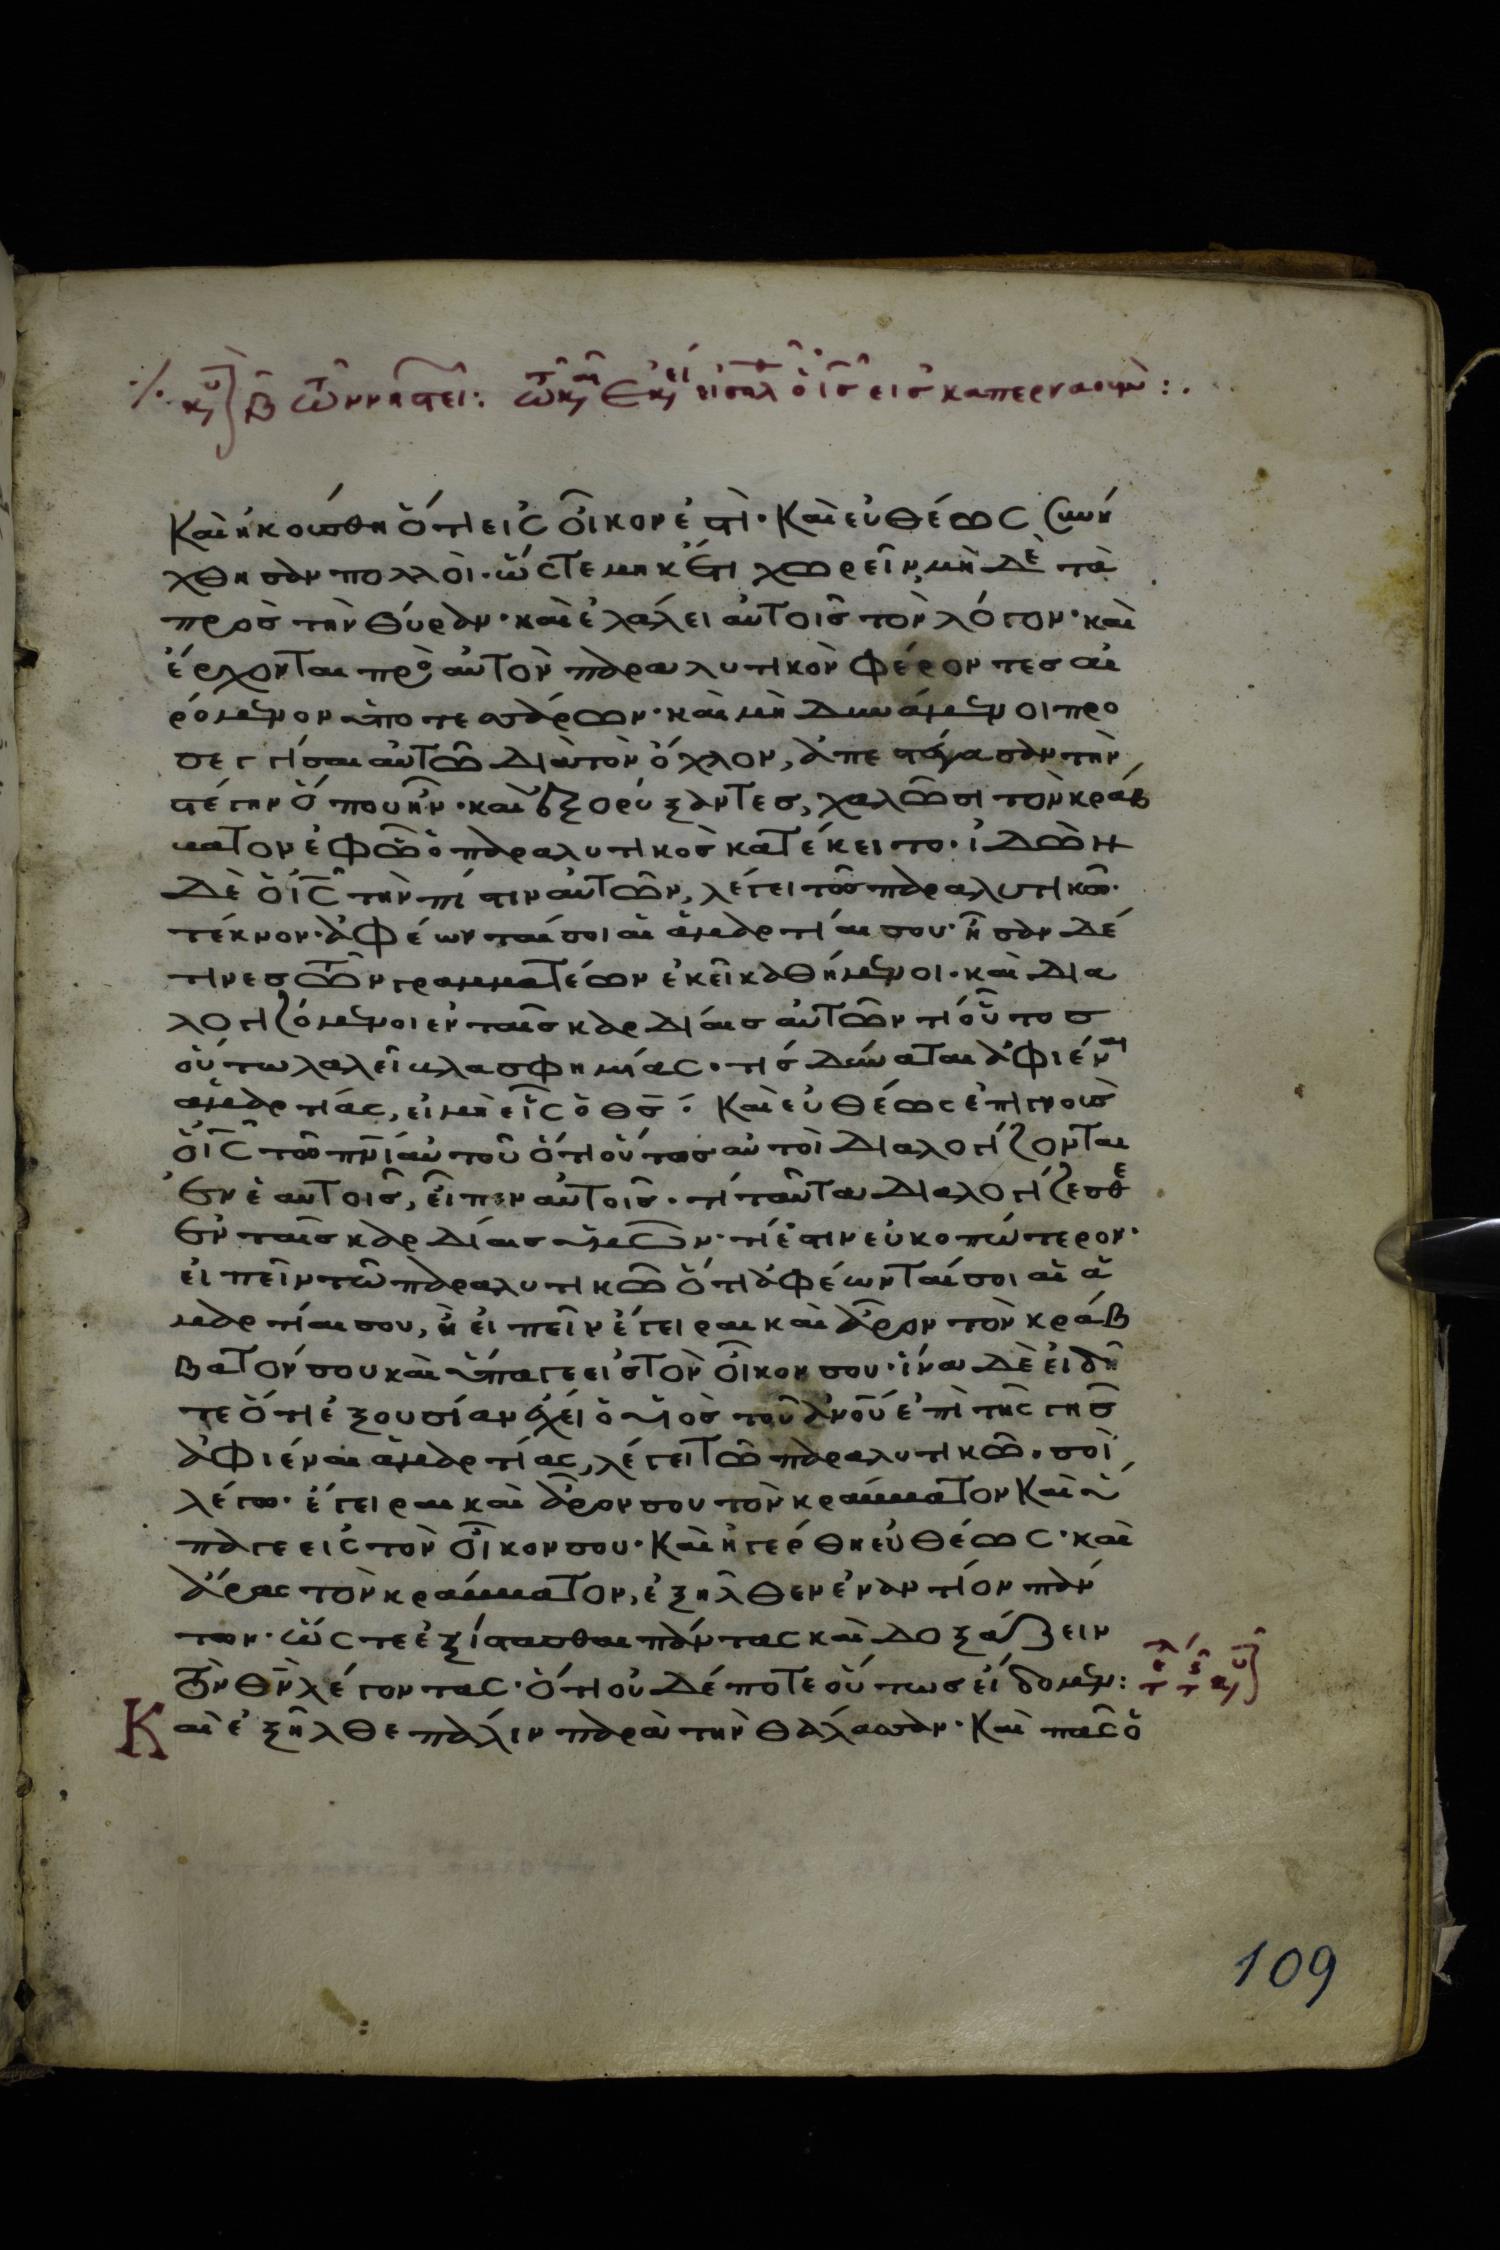 κυ β τῶν νηστει: τῶ κ ε εἰσηλ ὁ ις εις καπερναουμ:.
Καὶ ἠκούσθη ὅτι εἰς οἶκον ἐστί· Καὶ εὐθέως συνή
χθησαν πολλοὶ· ὥστε μηκέτι χωρεῖν, μὴ δὲ τὰ
πρὸς τὴν θύραν· καὶ ἐλάλει αὐτοῖς τὸν λόγον· καὶ
ἔρχονται πρὸς αὐτὸν παραλυτικὸν φέροντες αἰ
ρόμενον ὑπὸ τεσσάρων· καὶ μὴ δυνάμενοι προ
σεγγίσαι αὐτῶ διὰ τὸν ὄχλον, ἀπεστέγασαν τὴν
στέγην ὅπου ἦν· καὶ ἐξορύξαντες, χαλῶσι τὸν κράβ
βατον ἐφ ῶ ὁ παραλυτικὸς κατέκειτο· ἰδὼν
δὲ ὁ ις τὴν πίστιν αὐτῶν, λέγει τῶ παραλυτικῶ·
τέκνον· ἀφέωνταί σοι αἱ ἁμαρτίαι σου· ἦσαν δέ
τινες τῶν γραμματέων ἐκεῖ καθήμενοι· καὶ δια
λογιζόμενοι ἐν ταῖς καρδίαις αὐτῶν τί οὗτος
οὕτω λαλεῖ βλασφημίας· τίς δύναται ἀφιέναι
ἁμαρτίας, εἰ μὴ εἷς ὁ θς· Καὶ εὐθέως ἐπιγνοὺς
ὁ ις τῶ πνι αὐτοῦ ὅτι οὕτως αὐτοὶ διαλογίζονται
ἐν ἑαυτοῖς, εἶπεν αὐτοῖς· τί ταῦτα διαλογίζεσθε
ἐν ταῖς καρδίαις ὑμῶν· τί ἐστιν εὐκοπώτερον·
εἰπεῖν τῶ παραλυτικῶ ὅτι ἀφέωνταί σοι αἱ ἁ
μαρτίαι σου, ἢ εἰπεῖν ἔγειραι καὶ ἆρον τὸν κράβ
βατόν σου καὶ ὕπαγε εἰς τὸν οἶκον σου· ἵνα δὲ εἰδῆ
τε ὅτι ἐξουσίαν ἔχει ὁ υἱὸς τοῦ ανου ἐπὶ τῆς γῆς
ἀφιέναι ἁμαρτίας, λέγει τῶ παραλυτικῶ· σοὶ
λέγω· ἔγειραι καὶ ἆρον σου τὸν κράββατον Καὶ ὕ
παγε εἰς τὸν οἶκον σου· Καὶ ἠγέρθη εὐθέως· καὶ
ἄρας τὸν κράββατον, ἐξῆλθεν ἐναντίον πάν
των· ὥστε ἐξίστασθαι πάντας καὶ δοξάζειν
τὸν θν λέγοντας· ὅτι οὐδέποτε οὕτως εἴδομεν: τε τ κυ
Καὶ ἐξῆλθε πάλιν παρὰ τὴν θάλασσαν· Καὶ πᾶς ὁ
109